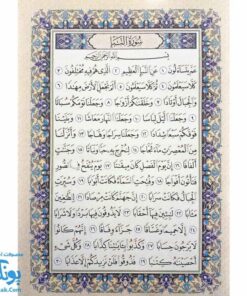 سُورَةُ النَّبَإِ
بِسْمِ اللَّهِ الرَّحْمَنِ الرَّحِيمِ
عَمَّ يَتَسَاءَلُونَ ١ عَنِ النَّبَإِ الْعَظِيمِ ٢ الَّذِي هُمْ فِيهِ مُخْتَلِفُونَ ٣
كَلَّا سَيَعْلَمُونَ ٤ ثُمَّ كَلَّا سَيَعْلَمُونَ ٥ أَلَمْ نَجْعَلِ الْأَرْضَ مِهَادًا ٦
وَالْجِبَالَ أَوْتَادًا ٧ وَخَلَقْنَاكُمْ أَزْوَاجًا ٨ وَجَعَلْنَا نَوْمَكُمْ سُبَاتًا
٩ وَجَعَلْنَا اللَّيْلَ لِبَاسًا ١٠ وَجَعَلْنَا النَّهَارَ مَعَاشًا ١١ وَبَنَيْنَا
فَوْقَكُمْ سَبْعًا شِدَادًا ١٢ وَجَعَلْنَا سِرَاجًا وَهَّاجًا ١٣ وَأَنْزَلْنَا
مِنَ الْمُعْصِرَاتِ مَاءً ثَجَّاجًا ١٤ لِنُخْرِجَ بِهِ حَبًّا وَنَبَاتًا ١٥ وَجَنَّاتٍ
أَلْفَافًا ١٦ إِنَّ يَوْمَ الْفَصْلِ كَانَ مِيقَاتًا ١٧ يَوْمَ يُنْفَخُ فِي الصُّورِ
فَتَأْتُونَ أَفْوَاجًا ١٨ وَفُتِحَتِ السَّمَاءُ فَكَانَتْ أَبْوَابًا ١٩ وَسُيِّرَتِ
الْجِبَالُ فَكَانَتْ سَرَابًا ٢٠ إِنَّ جَهَنَّمَ كَانَتْ مِرْصَادًا ٢١ لِلطَّاغِينَ
مَآبًا ٢٢ لَابِثِينَ فِيهَا أَحْقَابًا ٢٣ لَا يَذُوقُونَ فِيهَا بَرْدًا وَلَا شَرَابًا
٢٤ إِلَّا حَمِيمًا وَغَسَّاقًا ٢٥ جَزَاءً وِفَاقًا ٢٦ إِنَّهُمْ كَانُوا
لَا يَرْجُونَ حِسَابًا ٢٧ وَكَذَّبُوا بِآيَاتِنَا كِذَّابًا ٢٨ وَكُلَّ شَيْءٍ
أَحْصَيْنَاهُ كِتَابًا ٢٩ فَذُوقُوا فَلَنْ نَزِيدَكُمْ إِلَّا عَذَابًا ٣٠
محصولات
ak.com